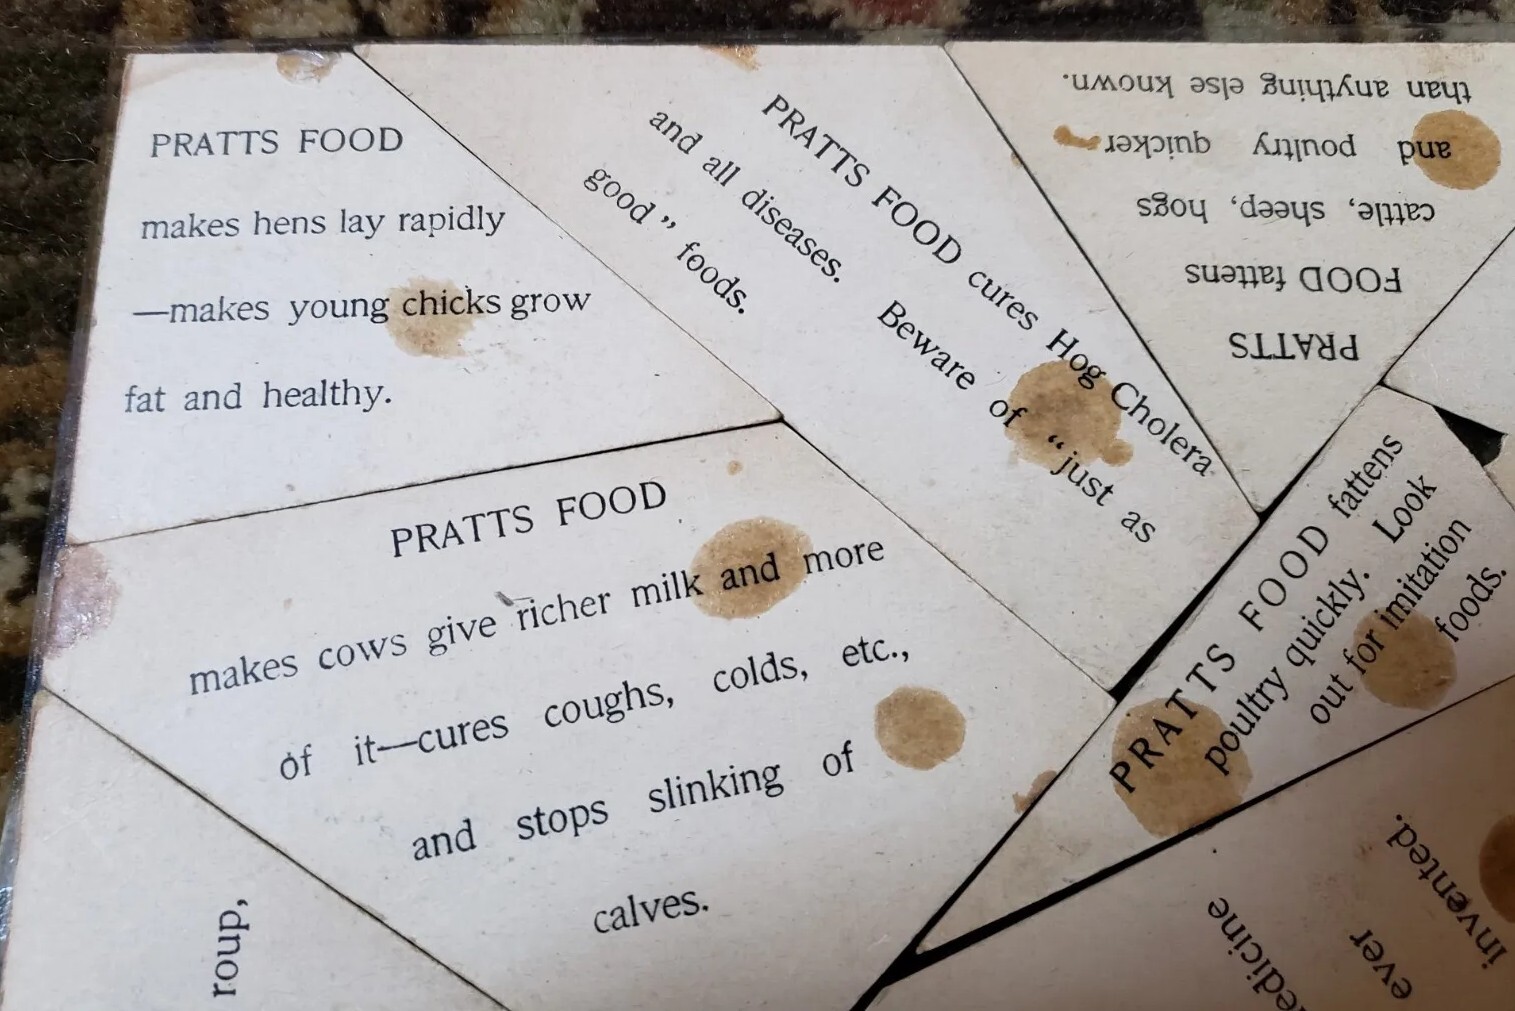 PRATTS FOOD
makes hens lay rapidly
—makes young chicks grow
fat and healthy.
PRATTS FOOD cures Hog Cholera
and all diseases. Beware of "just as
good" foods.
PRATTS
FOOD fattens
cattle, sheep, hogs
and poultry quicker
than anything else known.
PRATTS FOOD
makes cows give richer milk and more
of it—cures coughs, colds, etc.,
and stops slinking of
calves.
PRATTS FOOD fattens
poultry quickly. Look
out for imitation
foods.
roup,
edicine
ever
invented.